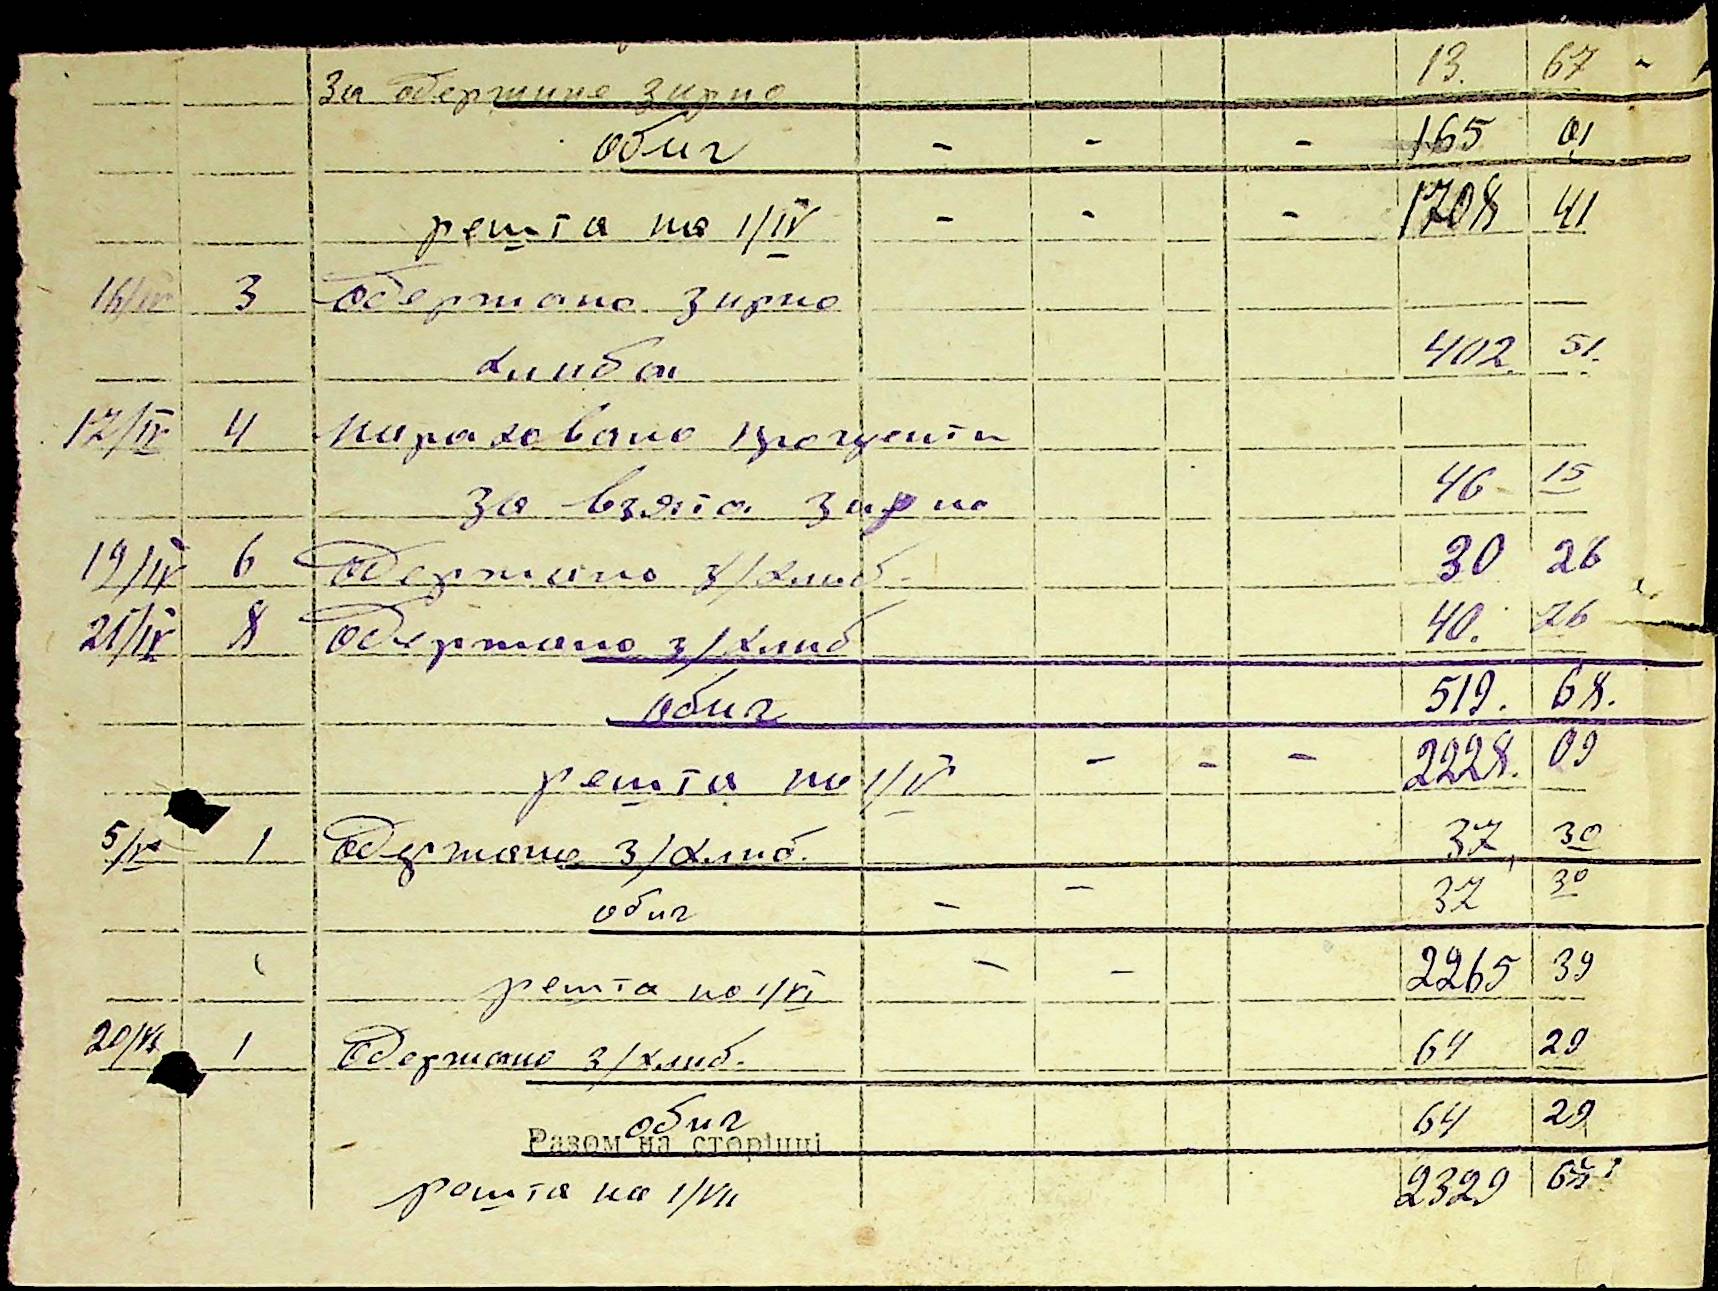 За одержане зирно 13. 67
обиг - - - 165 01
решта на 1/IV - - - 1708 41
16/IV 3 Одержано зирно
хлиба 402 51.
17/IV 4 Нараховано проценти
за взята зирно 46 15
19/IV 6 Одержано з/хлиб. 30 26
21/IV 8 Одержано з/хлиб 40. 76
обиг 519. 68.
решта на 1/V - - - 2228. 09
5/V 1 Одержано з/хлиб. 37, 30
обиг - - 37 30
решта на 1/VI - - 2265 39
20/VI 1 Одержано з/хлиб. 64 29
обиг 64 29
Разом на сторінці
решта на 1/VII 2329 68